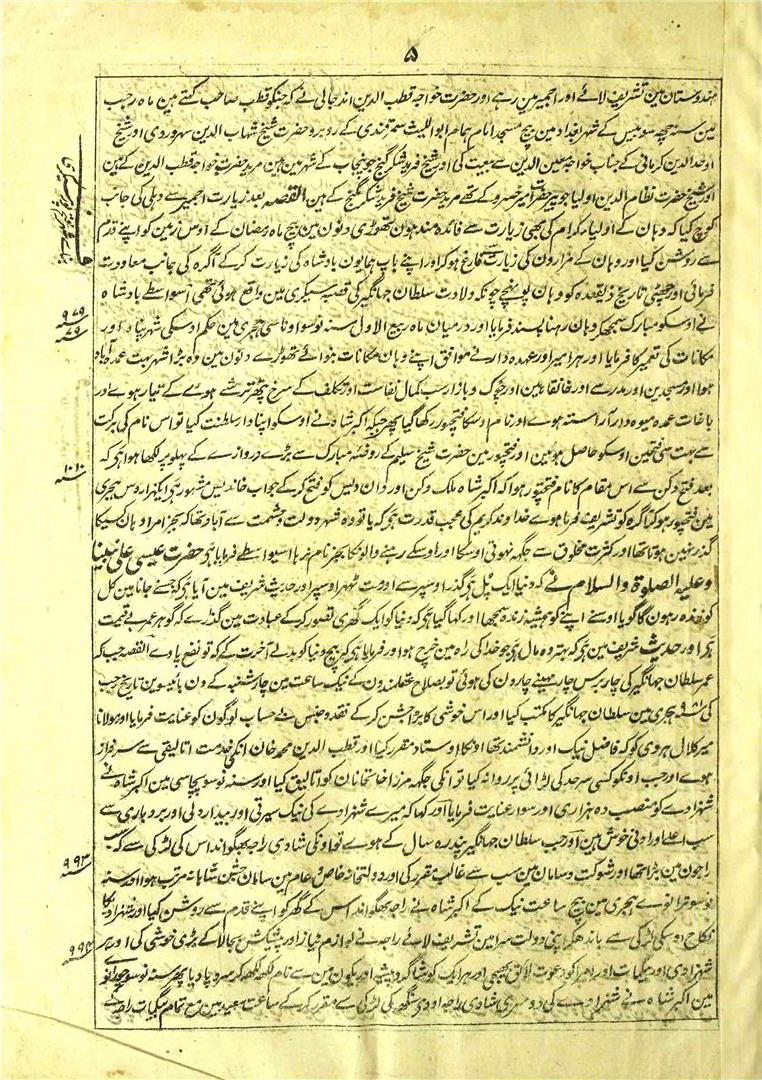 ۵
ہندوستان مین تشریف لائے اور اجمیر مین رہے اور حضرت خواجہ قطب الدین اندجانی نے کہ جنکو قطب صاحب کہتے ہین ماہ رجب
مین سنہ چھہ سو بیس کے شہر بغداد مین بیچ مسجد امام ہمام ابو اللیث سمرقندی کے روبرو حضرت شیخ شہاب الدین سہروردی اور شیخ
اوحد الدین کرمانی کے جناب خواجہ معین الدین سے بیعت کی اور شیخ فرید شکر گنج جو پنجاب کے شہر مین ہین مرید حضرت خواجہ قطب الدین کے ہین
اور شیخ حضرت نظام الدین اولیا جو پیر حضرت امیر خسرو کے تھے مرید حضرت شیخ فرید شکر گنج کے ہین القصہ بعد زیارت اجمیر سے دہلی کی جانب
کوچ کیا کہ وہان کے اولیاء کرام کی بھی زیارت سے فائدہ مند ہون تھوڑی دنون مین بیچ ماہ رمضان کے اوس زمین کو اپنے قدم
سے روشن کیا اور وہان کے مزارون کی زیارت سے فارغ ہو کر اور اپنے باپ ہمایون بادشاہ کی زیارت کر کے آگرہ کی جانب معاودت
فرمائی اور چھٹی تاریخ ذیقعدہ کو وہان پہونچے چونکہ ولادت سلطان جہانگیر کی قصبہ سیکری مین واقع ہوئی تھی اسواسطے بادشاہ
۹۷۹
نے اوسکو مبارک سمجھکر وہان رہنا پسند فرمایا اور درمیان ماہ ربیع الاول سنہ نوسو اوناسی ہجری مین حکم اوسکی شہر پناہ اور
مکانات کی تعمیر کا فرمایا اور ہر امیر اور عہدہ دار نے موافق اپنے وہان مکانات بنوائے تھوڑے دنون مین وہ بڑا شہر بہت عمدہ آباد
ہوا اور مسجدین اور مدرسے اور خانقاہین اور چوک و بازار سب کمال نفاست اور تکلف کے سرخ پتھر ترشے ہوے کے تیار ہوے اور
باغات عمدہ میوہ دار آراستہ ہوے اور نام اوسکا فتحپور رکھا گیا پھر جبکہ اکبر شاہ نے اوسکو اپنا دار سلطنت کیا تو اس نام کی برکت
سے بہت سی فتحین اوسکو حاصل ہوئین اور فتحپور مین حضرت شیخ سلیم کے روضہ مبارک سے بڑے دروازے کے پہلو پر لکھا ہوا ہی کہ
۱۰۱۰
بعد فتح دکن سے اس مقام کا نام فتحپور ہوا کہ اکبر شاہ ملک دکن اور دان دیس کو فتح کر کے جواب خاندیس مشہور ہی ایکہزار دس ہجری
مین فتحپور ہو کر آگرہ کو تشریف فرما ہوے خداوند کریم کی عجب قدرت ہی کہ یا تو وہ شہر دولت و حشمت سے آباد تھا کہ بجز امرا وہان کسیکا
گذر نہین ہوتا تھا اور کثرت مخلوق سے جگہہ نہوتی اوسکا اور اوسکے رہنے والونکا بجز نام نرہا اسیواسطے فرمایا ہی حضرت عیسی علی نبینا
وعلیہ الصلوۃ والسلام نے کہ دنیا ایک پل ہی گذر اوسپر سے اور مت ٹھہر اوسپر اور حدیث شریف مین آیا ہی کہ جسنے جانا مین کل
کو زندہ رہون گا گویا اوسنے اپنے کو ہمیشہ زندہ سمجھا اور کہا گیا ہی کہ دنیا کو ایک گھڑی تصور کر کے عبادت مین گذرے کہ گوہر عمر بے قیمت
ہی اور حدیث شریف مین ہی کہ بہتر وہ مال ہی جو خدا کی راہ مین خرچ ہو اور فرمایا ہی کہ بیچ دنیا کو بدلے آخرت کے کہ تو نفع پاوے القصہ جبکہ
عمر سلطان جہانگیر کی چار برس چار مہینے چار دن کی ہوئی تو بصلاح عقلمندون کے نیک ساعت مین چار شنبہ کے دن بائیسوین تاریخ رجب
کی سنہ ۹۸۱ ہجری مین سلطان جہانگیر کا مکتب کیا اور اس خوشی کا بڑا جشن کر کے نقد و جنس بے حساب لوگون کو عنایت فرمایا اور مولانا
میر کلان ہروی کو کہ فاضل نیک اور دانشمند تھا اونکا اوستاد مقرر کیا اور قطب الدین محمد خان اتکہ خدمت اتالیقی سے سرفراز
ہوے اور جب اونکو کسی سرحد کی لڑائی پر روانہ کیا تو انکی جگہہ مرزا خانخانان کو اتالیق کیا اور سنہ نوسو پچاسی مین اکبر شاہ نے
شہزادے کو منصب دہ ہزاری اور سوار عنایت فرمایا اور کہا کہ میرے شہزادے کی نیک سیرتی اور بیدار دلی اور بردباری سے
سب اعلے اور ادنی خوش ہین اور جب سلطان جہانگیر پندرہ سال کے ہوے تو اونکی شادی راجہ بھگوانداس کی لڑکی سے کہ سب
۹۹۳
راجون مین بڑا تھا اور شوکت و سامان مین سب سے غالب مقرر کی اور دولتخانہ خاص و عام مین سامان جشن شاہانہ مرتب ہوا اور سنہ
نوسو ترانوے ہجری مین بیچ ساعت نیک کے اکبر شاہ نے راجہ بھگوانداس کے گھر کو اپنے قدم سے روشن کیا اور شہزادیکا
نکاح اوسکی لڑکی سے باندھکر اپنی دولت سرا مین تشریف لائے راجہ نے لوازم نیاز اور پیشکش بجا لا کے بڑی خوشی کی اور ہر
۹۹۴
شہزادی اور بیگمات اور امرا کو دعوت لائق بھیجی اور ہر ایک کو
مین اکبر شاہ نے شہزادے کی دوسری شادی راجہ اودی سنگھ کی لڑکی سے مقرر کر کے ساعت سعید مین مع تمام بیگمات راجہ کے